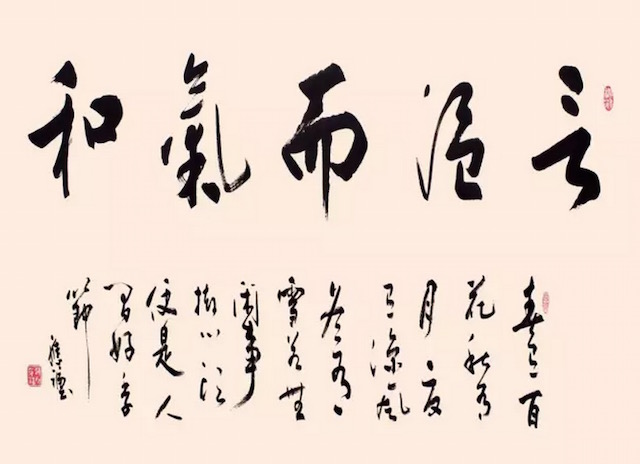 言温而氣和
春有百
花秋有
月夏
有涼風
冬有
雪若無
閑事
掛心頭
便是人
間好季
節